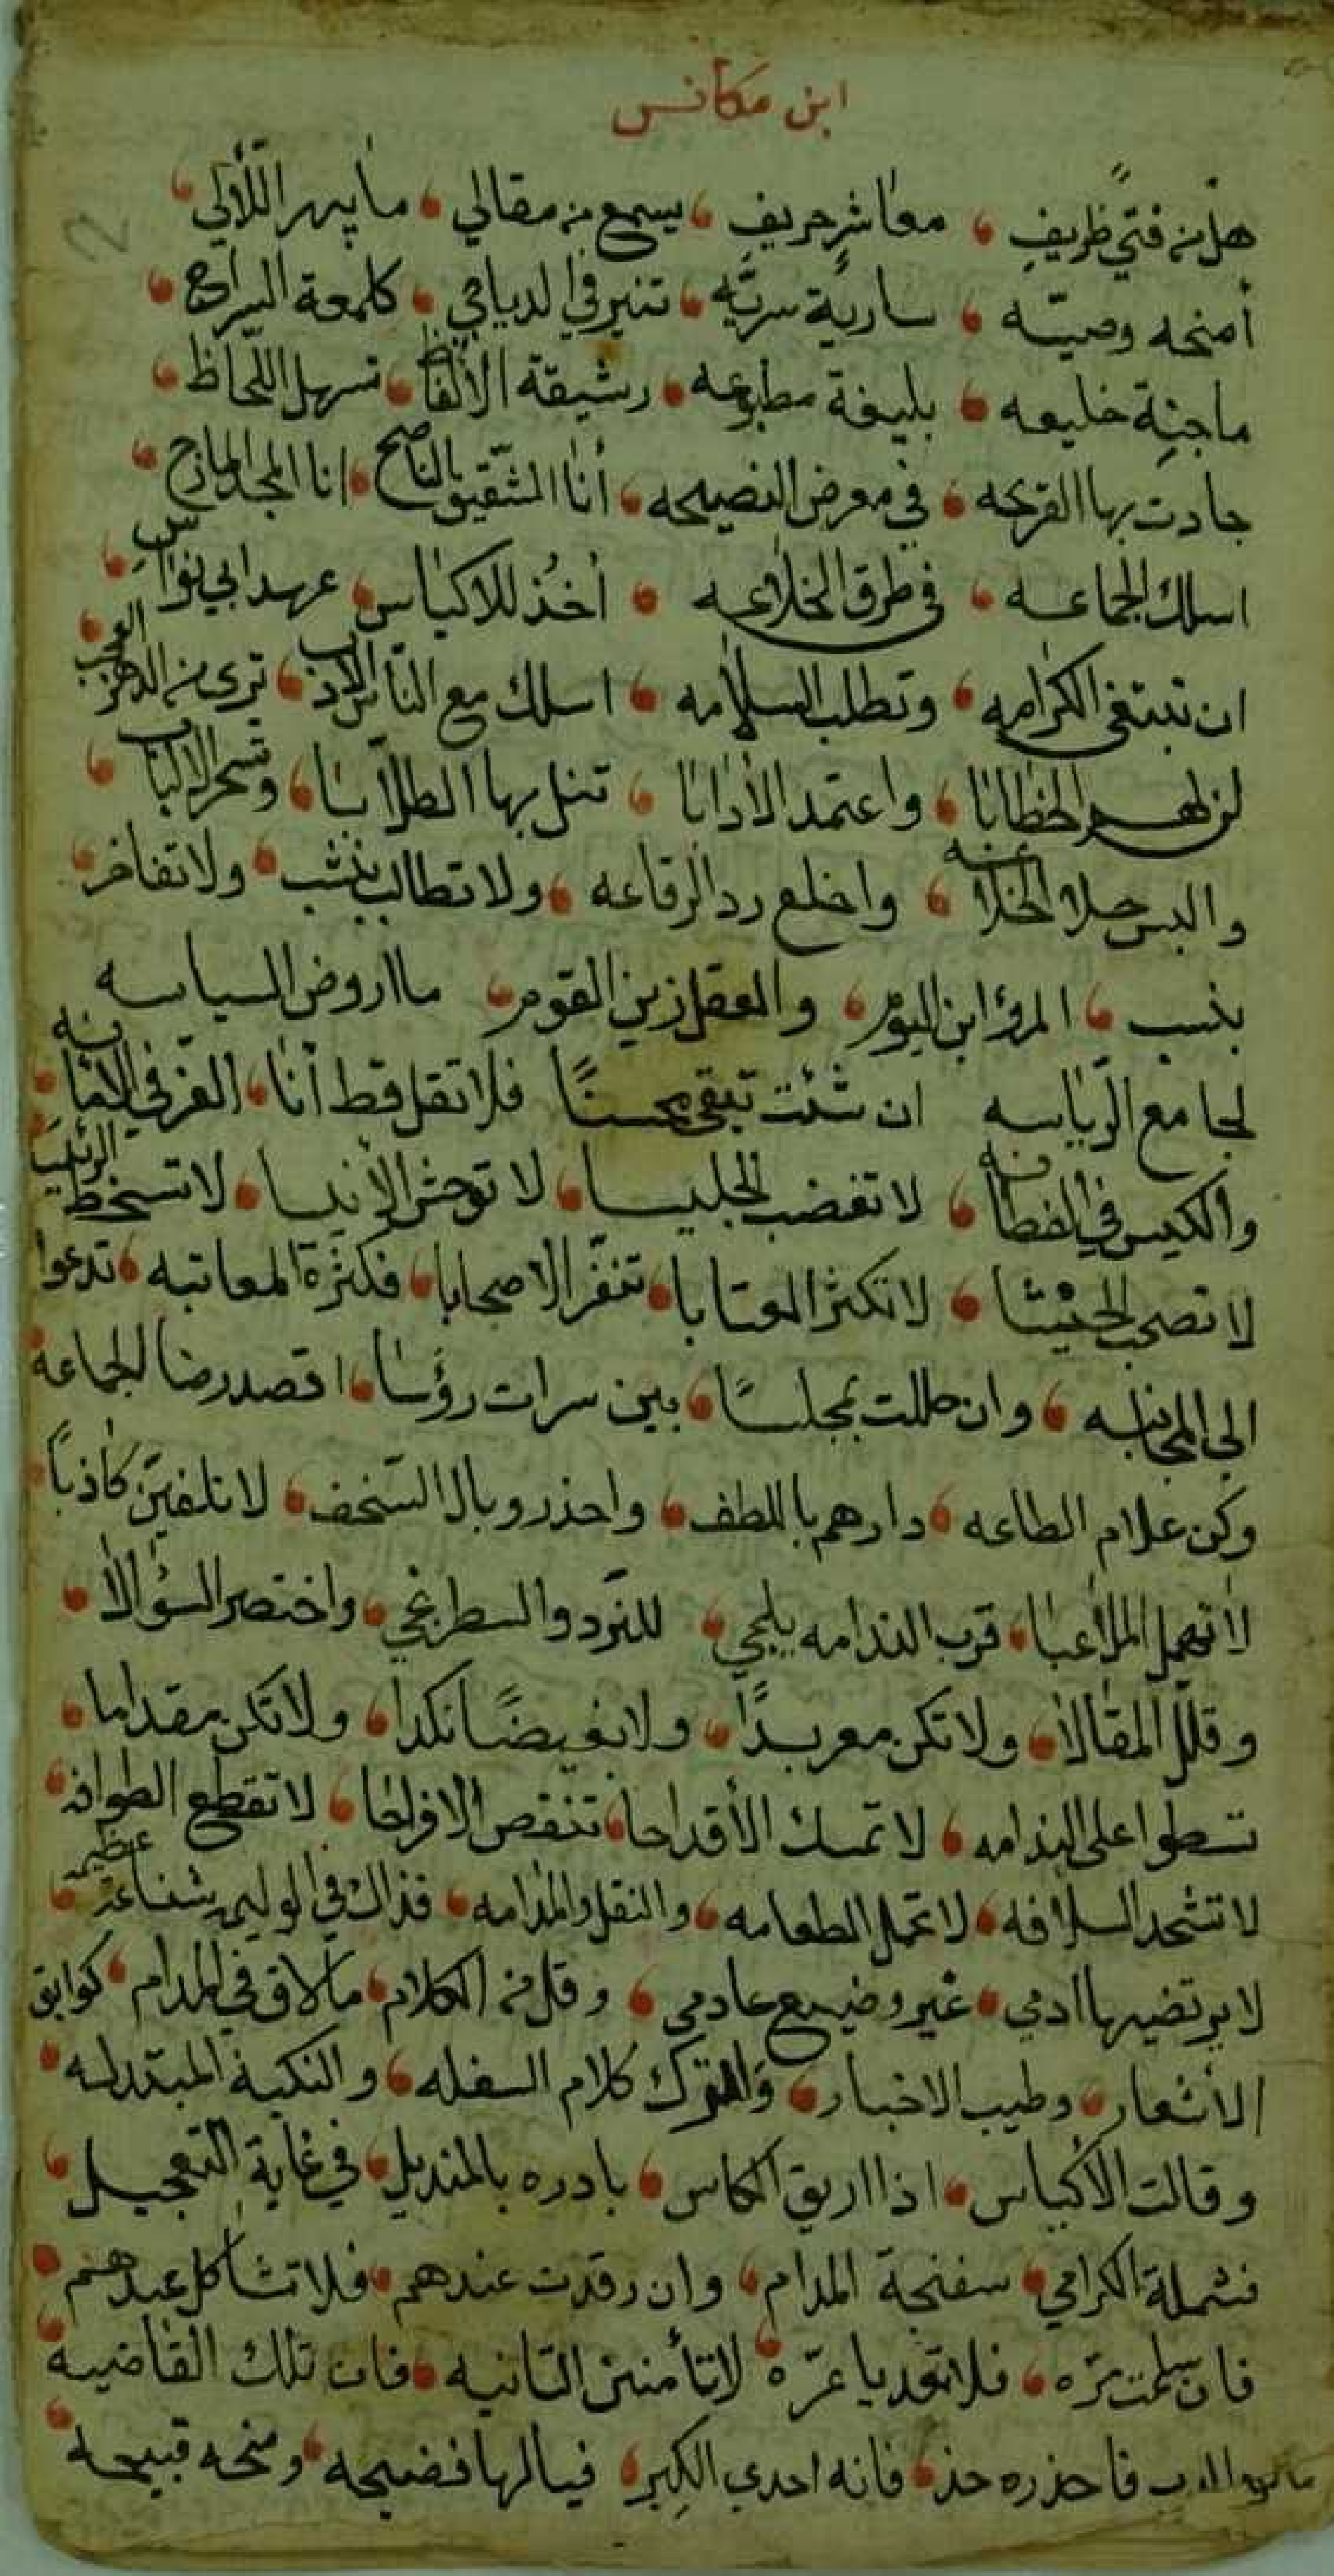 ابن مكانس
هل من فتىً ظريفِ معاشرٍ حريفِ يسمع من مقالي ما يبهر اللآلي
أمنحه وصيّه ساريةً سريّه تنير في الدياجي كلمعة السراج
ماجنةٍ خليعه بليغة مطبوعه رشيقة الألفاظ تسهل اللحاظ
جادت بها القريحه في معرض النصيحه أنا الشقيق الناصح أنا المجد المازح
اسلك الجماعه في طرق الخلاعه أخذ للاكياس عهد ابي نواس
ان تبتغي الكرامه وتطلب السلامه اسلك مع الناس الادب ترى من الدهر العجب
لن لهم الخطابا واعتمد الادابا تنل بها الطلابا وتسحر الالبابا
والبس حلا الخلاعه واخلع ردا الرقاعه ولا تطالب بنشب ولا تفاخر
بنسب المرؤ ابن اليوم والعقل زين القوم ما اروض السياسه
لجامع الرّياسه ان شئت تبقى محسنًا فلا تقل قط أنا العز في الامانه
والكيس في الفطانه لا تغضب الجليسا لا توحش الانيسا لا تسخط الرئيسا
لا تصحب الخبيثا لا تكثر العتابا تنفّر الاصحابا فكثرة المعاتبه تدعوا
الى المجانبه وان حللت مجلسًا بين سرات رؤسا اقصد رضا الجماعه
وكن غلام الطاعه دارهم باللطف واحذر وبال السّخف لا تلفينّ كاذبًا
لا تهمل الملاعبا قرب الندامه يلجي للنّرد والسطرنجي واختصر السؤالا
وقلّل المقالا ولا تكن معربدًا ولا بغيضًا نكدا ولا تكن مقداما
تسطوا على الندامه لا تمسك الأقداحا تنغص الافراحا لا تقطع الطوافه
لا تشحد السلافه لا تحمل الطعامه والنقل والمدامه فذاك في الوليمه شناعة عظيمه
لا يرتضيها ادمي غير وضيع عادمي وقل من الكلام ما لاق في المدام كوابق
الأشعار وطيب الاخبار واترك كلام السفله والنكبة المبتدله
وقالت الأكياس اذا اريق الكاس بادره بالمنديل في غاية التعجيل
فشملة الكرامي سفنجة المدام وان رقدت عندهم فلا تشاكل عبدهم
فان سلمت مرّه فلا تعد يا عرّه لا تأمنن الثانيه فان تلك القاضيه
الدب فاحذره حذ فانه احدى الكبر فيالها فضيحه ومنحه قبيحه